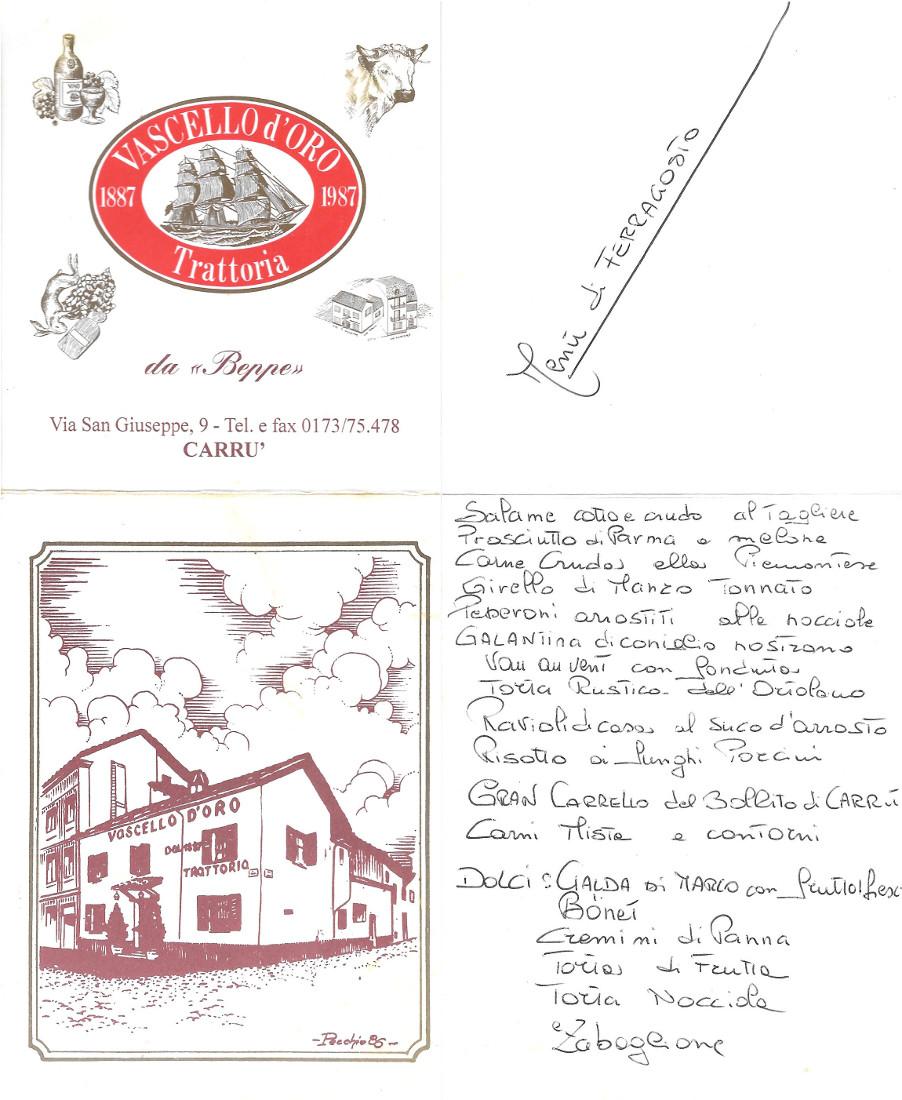 VINO
VASCELLO d'ORO
1887 1987
Trattoria
da «Beppe»
Via San Giuseppe, 9 - Tel. e fax 0173/75.478
CARRU'
Menù di FERRAGOSTO
VASCELLO D'ORO
DAL 1887
TRATTORIA
Pecchio 86
Salame cotto e crudo al Tagliere
Prosciutto di Parma e melone
Carne Cruda alla Piemontese
Girello di Manzo Tonnato
Peperoni arrostiti alle nocciole
GALANTINA di coniglio nostrano
Vou au vent con fonduta
Torta Rustica dell'Ortolano
Ravioli di casa al suco d'arrosto
Risotto ai funghi Porcini
GRAN CARRELLO del Bollito di CARRÙ
Carni Miste e contorni
DOLCI: di MARCO con
Bònet
Cremini di Panna
Torta di Frutta
Torta Nocciole
e Zabaglione